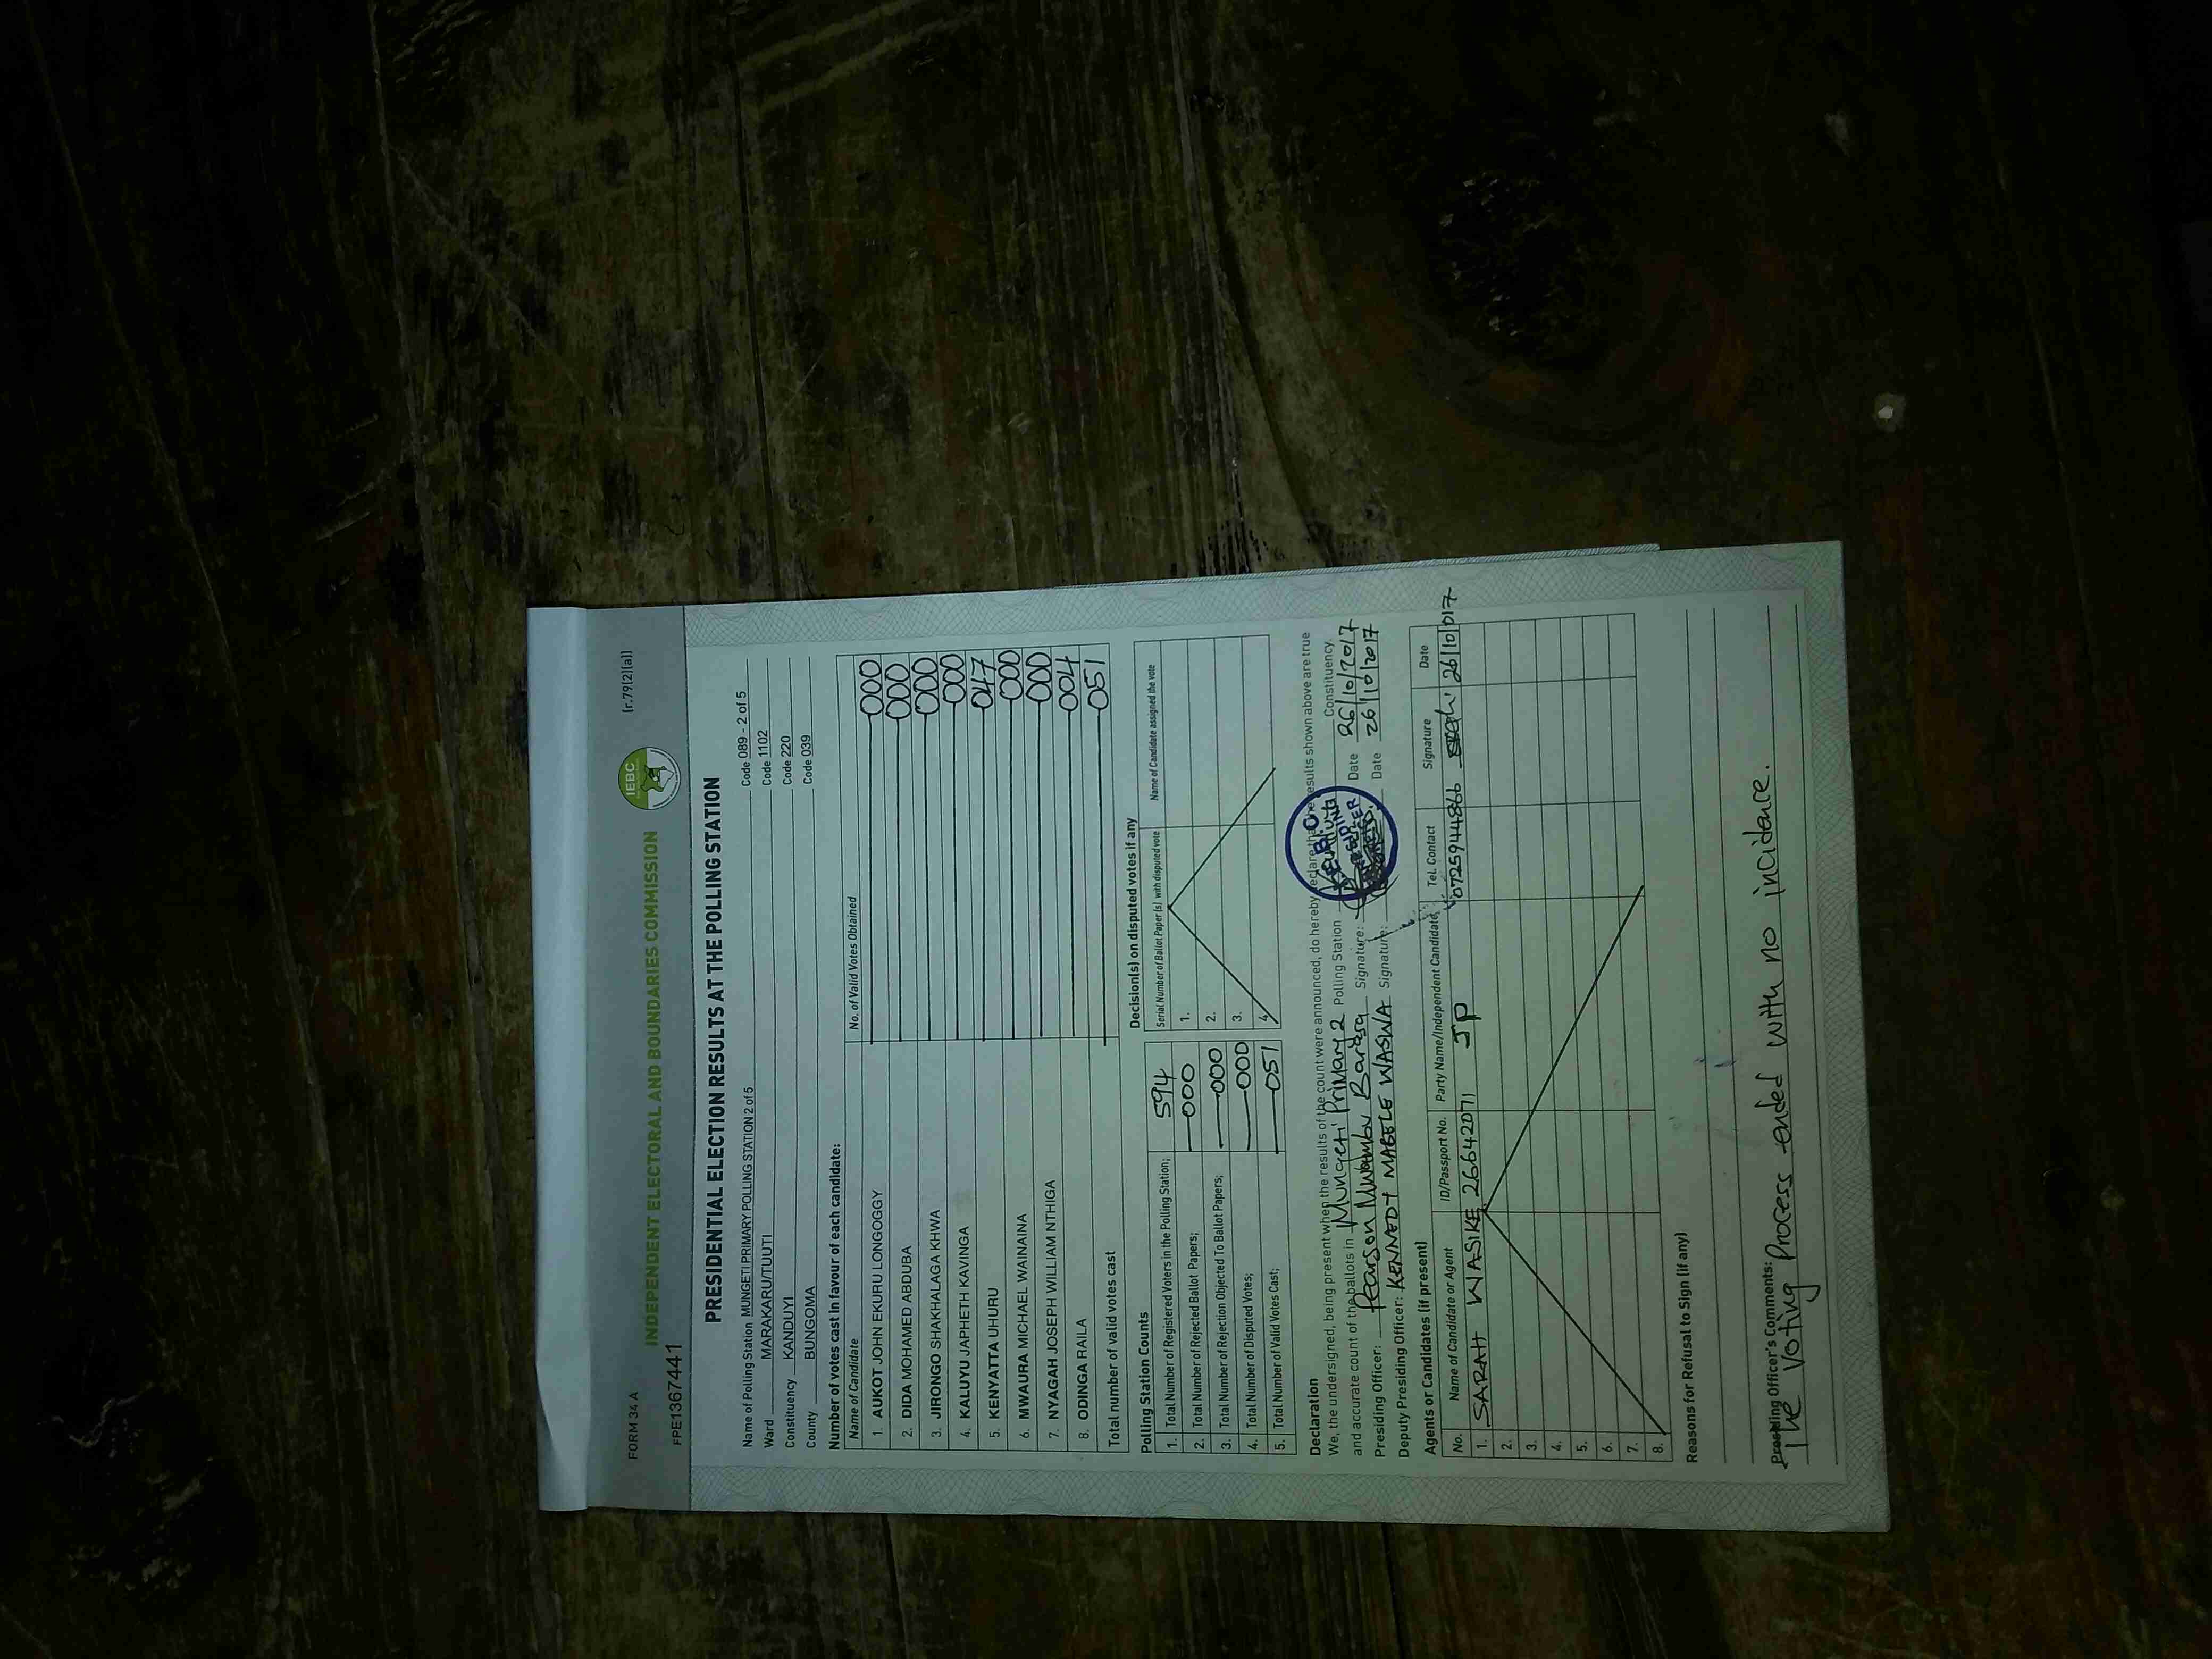 FORM 34 A
INDEPENDENT ELECTORAL AND BOUNDARIES COMMISSION
IEBC
[r.79[2][a]]
FPE1367441
PRESIDENTIAL ELECTION RESULTS AT THE POLLING STATION
Name of Polling Station MUNGETI PRIMARY POLLING STATION 2 of 5 Code 089 - 2 of 5
Ward MARAKARU/TUUTI Code 1102
Constituency KANDUYI Code 220
County BUNGOMA Code 039
Number of votes cast in favour of each candidate:
Name of Candidate No. of Valid Votes Obtained
1. AUKOT JOHN EKURU LONGOGGY 000
2. DIDA MOHAMED ABDUBA 000
3. JIRONGO SHAKHALAGA KHWA 000
4. KALUYU JAPHETH KAVINGA 000
5. KENYATTA UHURU 047
6. MWAURA MICHAEL WAINAINA 000
7. NYAGAH JOSEPH WILLIAM NTHIGA 000
8. ODINGA RAILA 004
Total number of valid votes cast 051
Polling Station Counts
1. Total Number of Registered Voters in the Polling Station; 594
2. Total Number of Rejected Ballot Papers; 000
3. Total Number of Rejection Objected To Ballot Papers; 000
4. Total Number of Disputed Votes; 000
5. Total Number of Valid Votes Cast; 051
Decision(s) on disputed votes if any
Serial Number of Ballot Paper (s) with disputed vote Name of Candidate assigned the vote
1.
2.
3.
4.
Declaration
We, the undersigned, being present when the results of the count were announced, do hereby declare that the results shown above are true
and accurate count of the ballots in Mungeti Primary 2 Polling Station Constituency.
Presiding Officer: Pearson Mwambu Barasa Signature: Date 26/10/2017
Deputy Presiding Officer: KENNEDY MABELE WASWA Signature: Date 26/10/2017
Agents or Candidates (if present)
No. Name of Candidate or Agent ID/Passport No. Party Name/Independent Candidate Tel. Contact Signature Date
1. SARAH WASIKE 266642071 JP 0725944866 26/10/017
2.
3.
4.
5.
6.
7.
8.
Reasons for Refusal to Sign (if any)
Presiding Officer's Comments:
The Voting Process ended with no incidance.